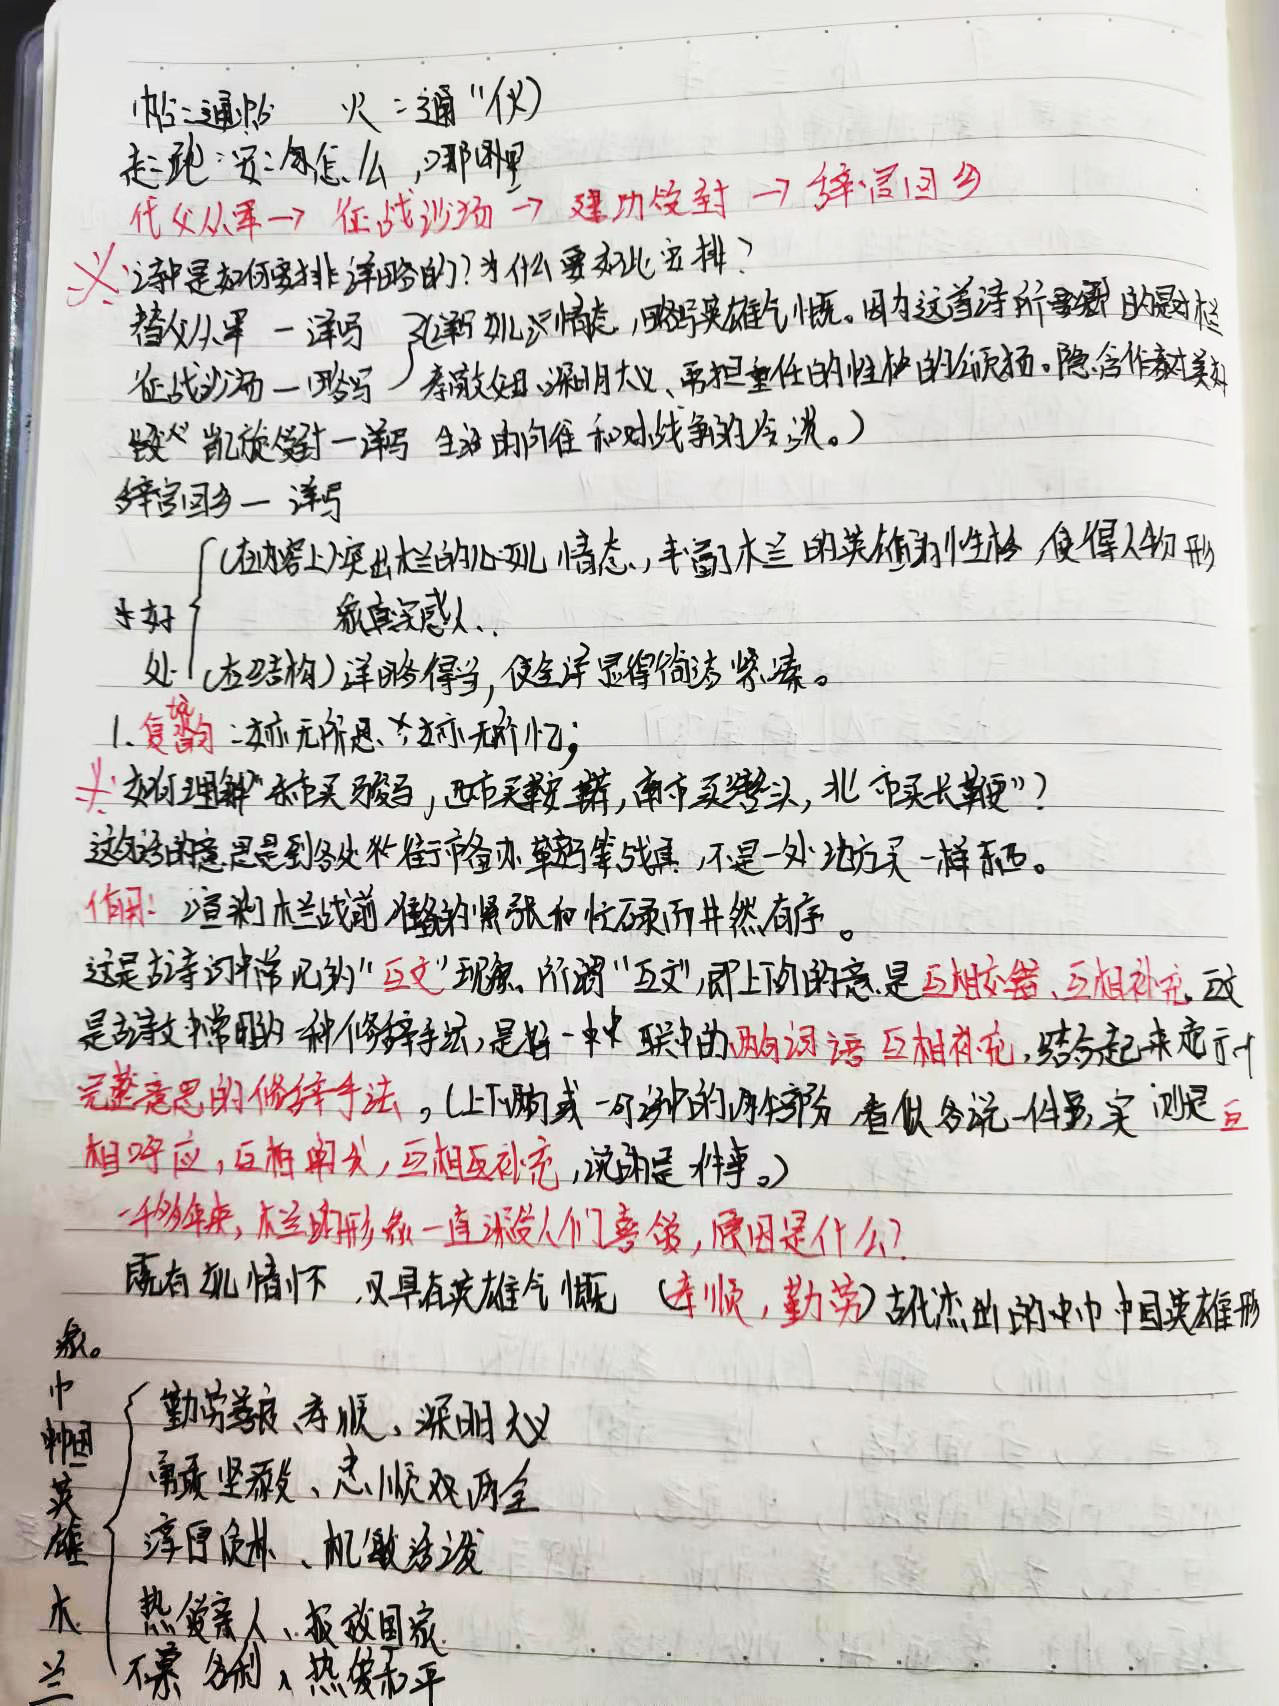 帖:通帖 火:通"伙)
走:跑 安:怎么,哪里
代父从军→征战沙场→建功受封→辞官回乡
诗中是如何安排详略的?为什么要如此安排?
替父从军—详写 (详写女儿情态,略写英雄气慨。因为这首诗所要的是对木兰
征战沙场—略写 孝敬父母、深明大义、勇担重任的性格的颂扬。隐含作者对美好
凯旋受封—详写 生活的向往和对战争的冷淡。)
辞官回乡—详写
好处
(在内容上)突出木兰的儿女情态,丰富了木兰的英雄的性格,使得人物形
象真实感人.
(在结构)详略得当,使全详显得简洁紧凑。
1.复沓句:女亦无所思、女亦无所忆;
如何理解"东市买骏马,西市买鞍鞯,南市买辔头,北市买长鞭"?
这句话的意思是到各处街市备办鞍马等战具,不是一处地方买一样东西。
作用:渲染木兰战前准备的紧张和忙碌而井然有序。
这是古诗词中常见的"互文"现象。所谓"互文",即上下句的意是互相交错、互相补充,互文
是古诗文中常用的一种修辞手法,是指一联中的两句词语互相补充,结合起来表示一个
完整意思的修辞手法。(上下两句或一句话中的两个部分,看似各说一件事,实则是互
相呼应,互相阐发,互相互补充,说的是一件事。)
一千多年来,木兰的形象一直深受人们喜爱,原因是什么?
既有女儿情怀,又具有英雄气慨 (孝顺,勤劳)古代杰出的巾巾帼英雄形
象。
巾帼英雄木兰
勤劳善良、孝顺、深明大义
勇敢坚毅、忠顺双两全
淳厚质朴、机敏活泼
热爱亲人、报效国家
不慕名利、热爱和平